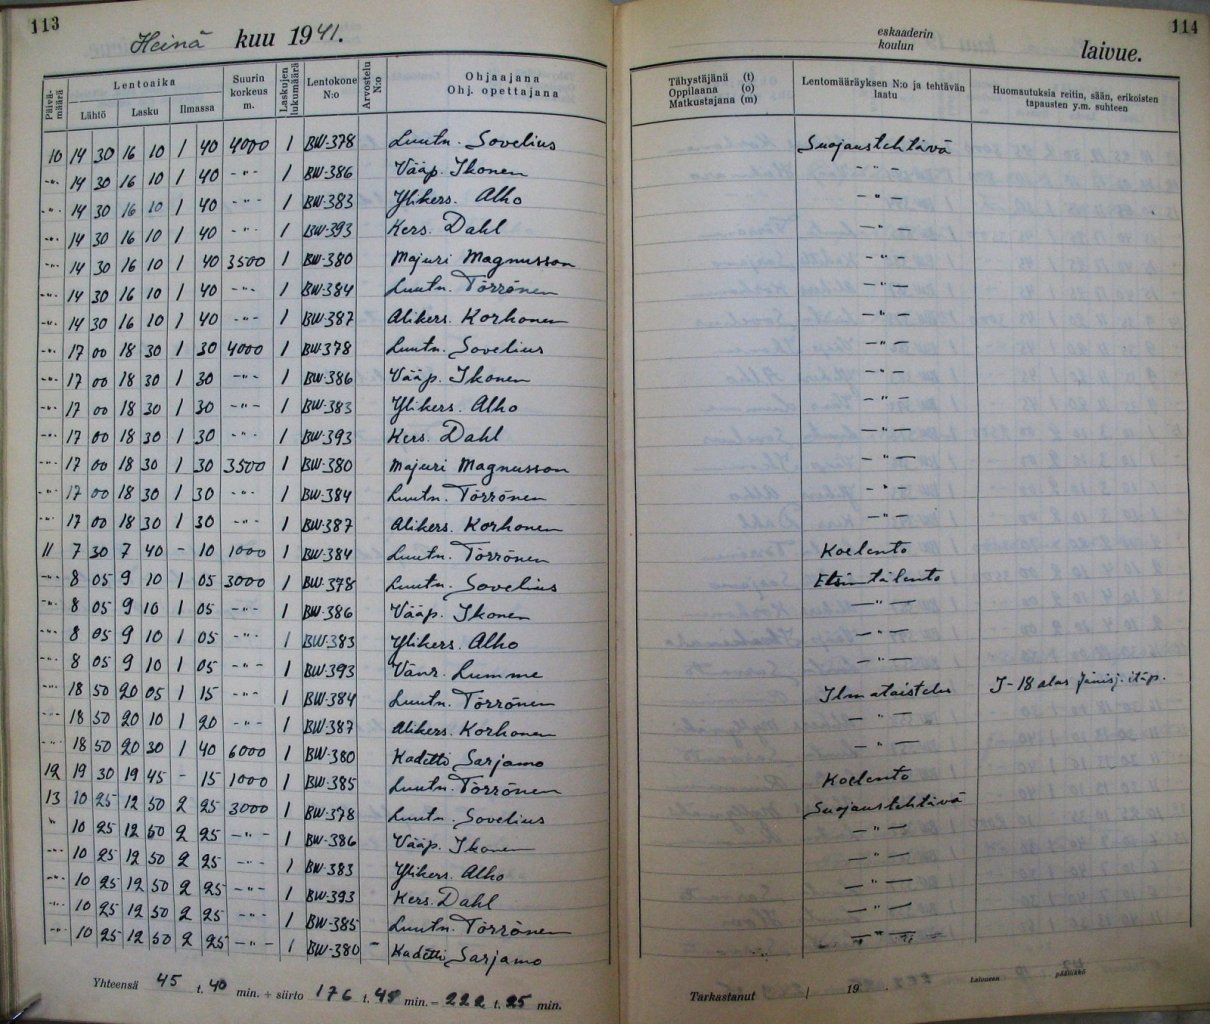 113
Heinä kuu 1941.
Päivämäärä
Lentoaika
Lähtö Lasku Ilmassa
Suurin korkeus m.
Laskujen lukumäärä
Lentokone N:o
Arvostelu N:o
Ohjaajana
Ohj. opettajana
10 14 30 16 10 1 40 4000 1 BW-378 Luutn. Sovelius
-"- 14 30 16 10 1 40 -"- 1 BW-386 Vääp. Ikonen
-"- 14 30 16 10 1 40 -"- 1 BW-383 Ylikers. Alho
-"- 14 30 16 10 1 40 -"- 1 BW-393 Kers. Dahl
-"- 14 30 16 10 1 40 3500 1 BW-380 Majuri Magnusson
-"- 14 30 16 10 1 40 -"- 1 BW-384 Luutn. Törrönen
-"- 14 30 16 10 1 40 -"- 1 BW-387 Alikers. Korhonen
-"- 17 00 18 30 1 30 4000 1 BW-378 Luutn. Sovelius
-"- 17 00 18 30 1 30 -"- 1 BW-386 Vääp. Ikonen
-"- 17 00 18 30 1 30 -"- 1 BW-383 Ylikers. Alho
-"- 17 00 18 30 1 30 -"- 1 BW-393 Kers. Dahl
-"- 17 00 18 30 1 30 3500 1 BW-380 Majuri Magnusson
-"- 17 00 18 30 1 30 -"- 1 BW-384 Luutn. Törrönen
-"- 17 00 18 30 1 30 -"- 1 BW-387 Alikers. Korhonen
11 7 30 7 40 - 10 1000 1 BW-384 Luutn. Törrönen
-"- 8 05 9 10 1 05 3000 1 BW-378 Luutn. Sovelius
-"- 8 05 9 10 1 05 -"- 1 BW-386 Vääp. Ikonen
-"- 8 05 9 10 1 05 -"- 1 BW-383 Ylikers. Alho
-"- 8 05 9 10 1 05 -"- 1 BW-393 Vänr. Lumme
-"- 18 50 20 05 1 15 -"- 1 BW-384 Luutn. Törrönen
-"- 18 50 20 10 1 20 -"- 1 BW-387 Alikers. Korhonen
-"- 18 50 20 30 1 40 6000 1 BW-380 Kadetti Sarjamo
12 19 30 19 45 - 15 1000 1 BW-385 Luutn. Törrönen
13 10 25 12 50 2 25 3000 1 BW-378 Luutn. Sovelius
" 10 25 12 50 2 25 -"- 1 BW-386 Vääp. Ikonen
-"- 10 25 12 50 2 25 -"- 1 BW-383 Ylikers. Alho
-"- 10 25 12 50 2 25 -"- 1 BW-393 Kers. Dahl
-"- 10 25 12 50 2 25 -"- 1 BW-385 Luutn. Törrönen
-"- 10 25 12 50 2 25 -"- 1 BW-380 - Kadetti Sarjamo
Yhteensä 45 t. 40 min. + siirto 176 t. 45 min. = 222 t. 25 min.
114
eskaaderin
koulun
laivue.
Tähystäjänä (t)
Oppilaana (o)
Matkustajana (m)
Lentomääräyksen N:o ja tehtävän laatu
Huomautuksia reitin, sään, erikoisten tapausten y.m. suhteen
Suojaustehtävä
-"-
-"-
-"-
-"-
-"-
-"-
-"-
-"-
-"-
-"-
-"-
-"-
-"-
Koelento
Etsintälento
-"-
-"-
-"-
Ilmataistelu J-18 alas Jänisj. itäp.
-"-
-"-
Koelento
Suojaustehtävä
-"-
-"-
-"-
-"-
-"-
Tarkastanut / 19 .
Laivueen päällikkö